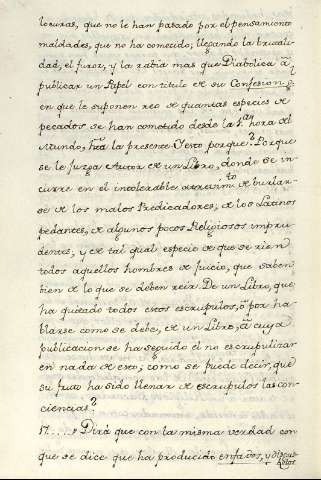 locuras, que no le han pasado por el pensamiento
maldades, que no ha cometido; llegando la brutali-
dad, el furor, y la rabia mas que Diabolica ā
publicar un Papel con titulo de su Confesion G.
en que le suponen reo de quantas especies de
pecados se han cometido desde la 1.ª hora del
Mundo, hta la presente? Y esto porque? Porque
se le juzga Autor de un Libro, donde se in-
curre en el intolerable atrevim.to de burlar-
se de los malos Predicadores; de los Latinos
pedantes, de algunos pocos Religiosos impru-
dentes; y de tal qual especie de que se rien
todos aquellos hombres de juicio, que saben
bien de lo que se deben reir. De un Libro, que
ha quitado todos estos escrupulos, ō por ha-
blarse como se debe, de un Libro, ā cuya
publicacion se ha seguido el no escrupulizar
en nada de esto; como se puede decir, que
su fruto ha sido llenar de escrupulos las con-
ciencias?
17..... Dirā que con la misma verdad con
que se dice que ha producido enfados, y discul-